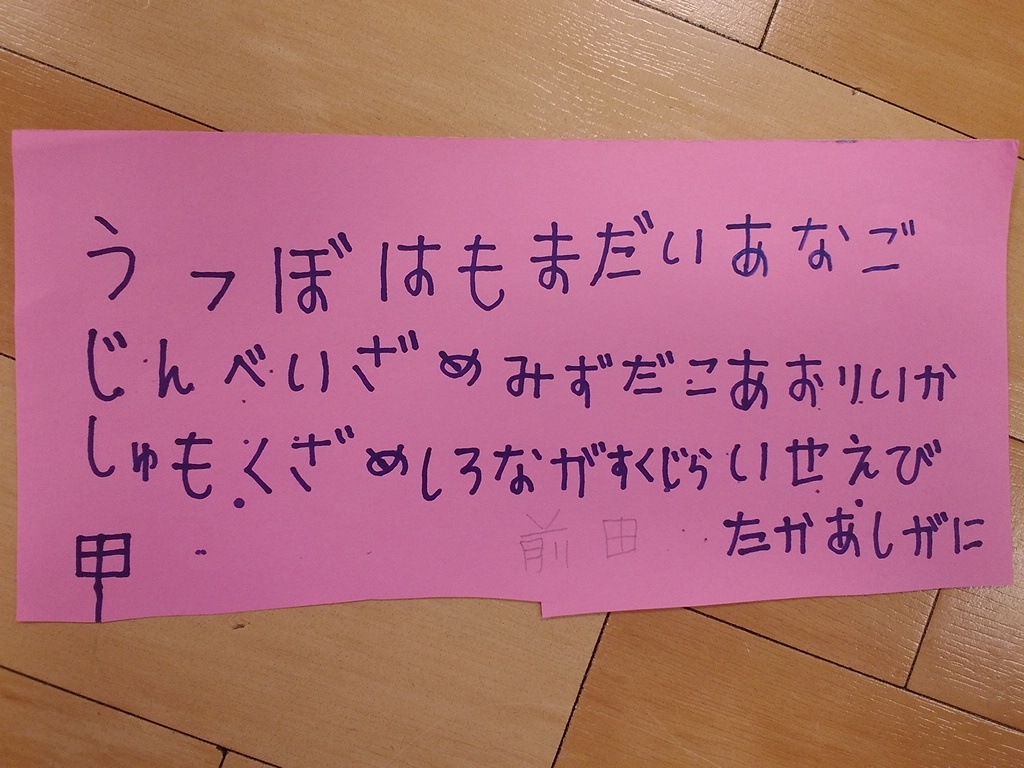 うつぼはもまだいあなご
じんべいざめみずだこあおりいか
しゅもくざめしろながすくじらいせえび
たかあしがに
甲 前田